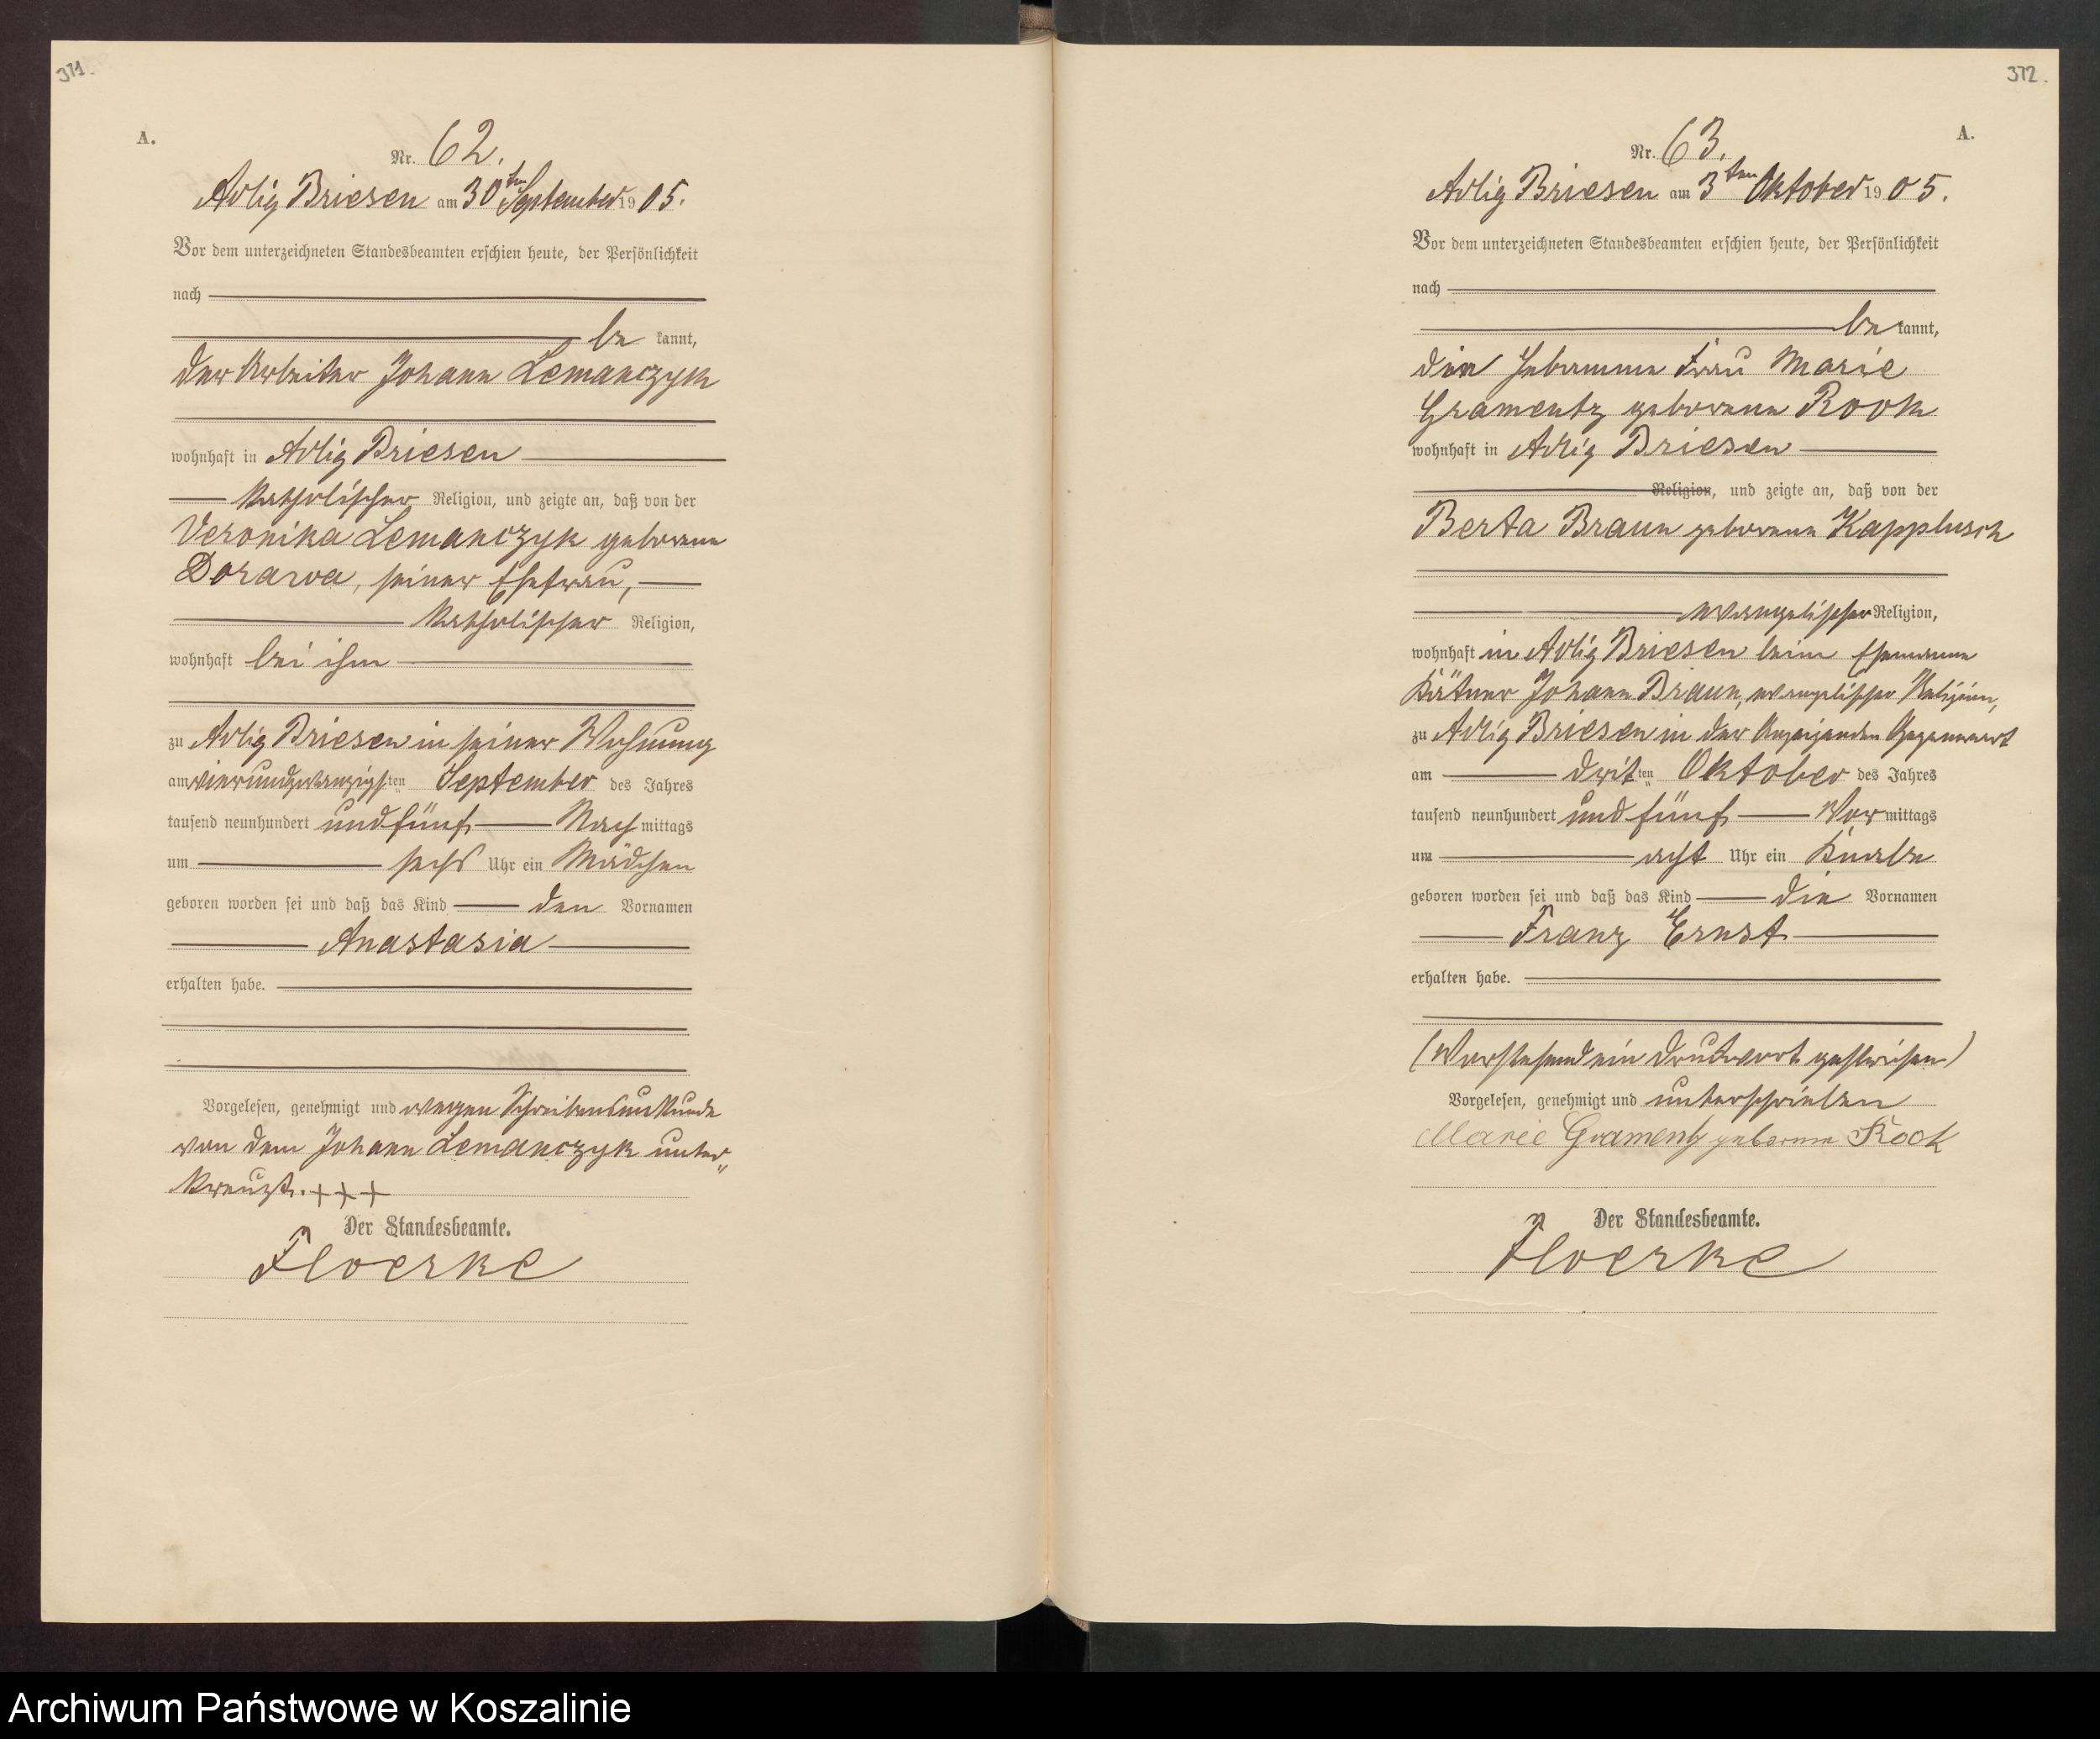 371.
A.
Nr. 62.
Adlig Briesen am 30ten September 1905.
Vor dem unterzeichneten Standesbeamten erschien heute, der Persönlichkeit
nach
be kannt,
der Arbeiter Johann Lemanczyk
wohnhaft in Adlig Briesen
katholischer Religion, und zeigte an, daß von der
Veronika Lemanczyk geborene
Dorawa, seiner Ehefrau,
katholischer Religion,
wohnhaft bei ihm
zu Adlig Briesen in seiner Wohnung
am vierundzwanzigsten September des Jahres
tausend neunhundert und fünf Nach mittags
um sechs Uhr ein Mädchen
geboren worden sei und daß das Kind den Vornamen
Anastasia
erhalten habe.
Vorgelesen, genehmigt und wegen Schreibensunkunde
von dem Johann Lemanczyk unter„
kreuzt. +++
Der Standesbeamte.
Floerke
372.
A.
Nr. 63.
Adlig Briesen am 3ten Oktober 1905.
Vor dem unterzeichneten Standesbeamten erschien heute, der Persönlichkeit
nach
be kannt,
die Hebamme Frau Marie
Gramentz geborene Rook
wohnhaft in Adlig Briesen
Religion, und zeigte an, daß von der
Berta Braun geborene Kapplusch
evangelischer Religion,
wohnhaft in Adlig Briesen beim Ehemanne
Kätner Johann Braun, evangelischer Religion,
zu Adlig Briesen in der Anzeigenden Gegenwart
am dritten Oktober des Jahres
tausend neunhundert und fünf Vor mittags
um acht Uhr ein Knabe
geboren worden sei und daß das Kind die Vornamen
Franz Ernst
erhalten habe.
(Vorstehend ein Druckwort gestrichen)
Vorgelesen, genehmigt und unterschrieben
Marie Gramentz geborene Rook
Der Standesbeamte.
Floerke
Archiwum Państwowe w Koszalinie